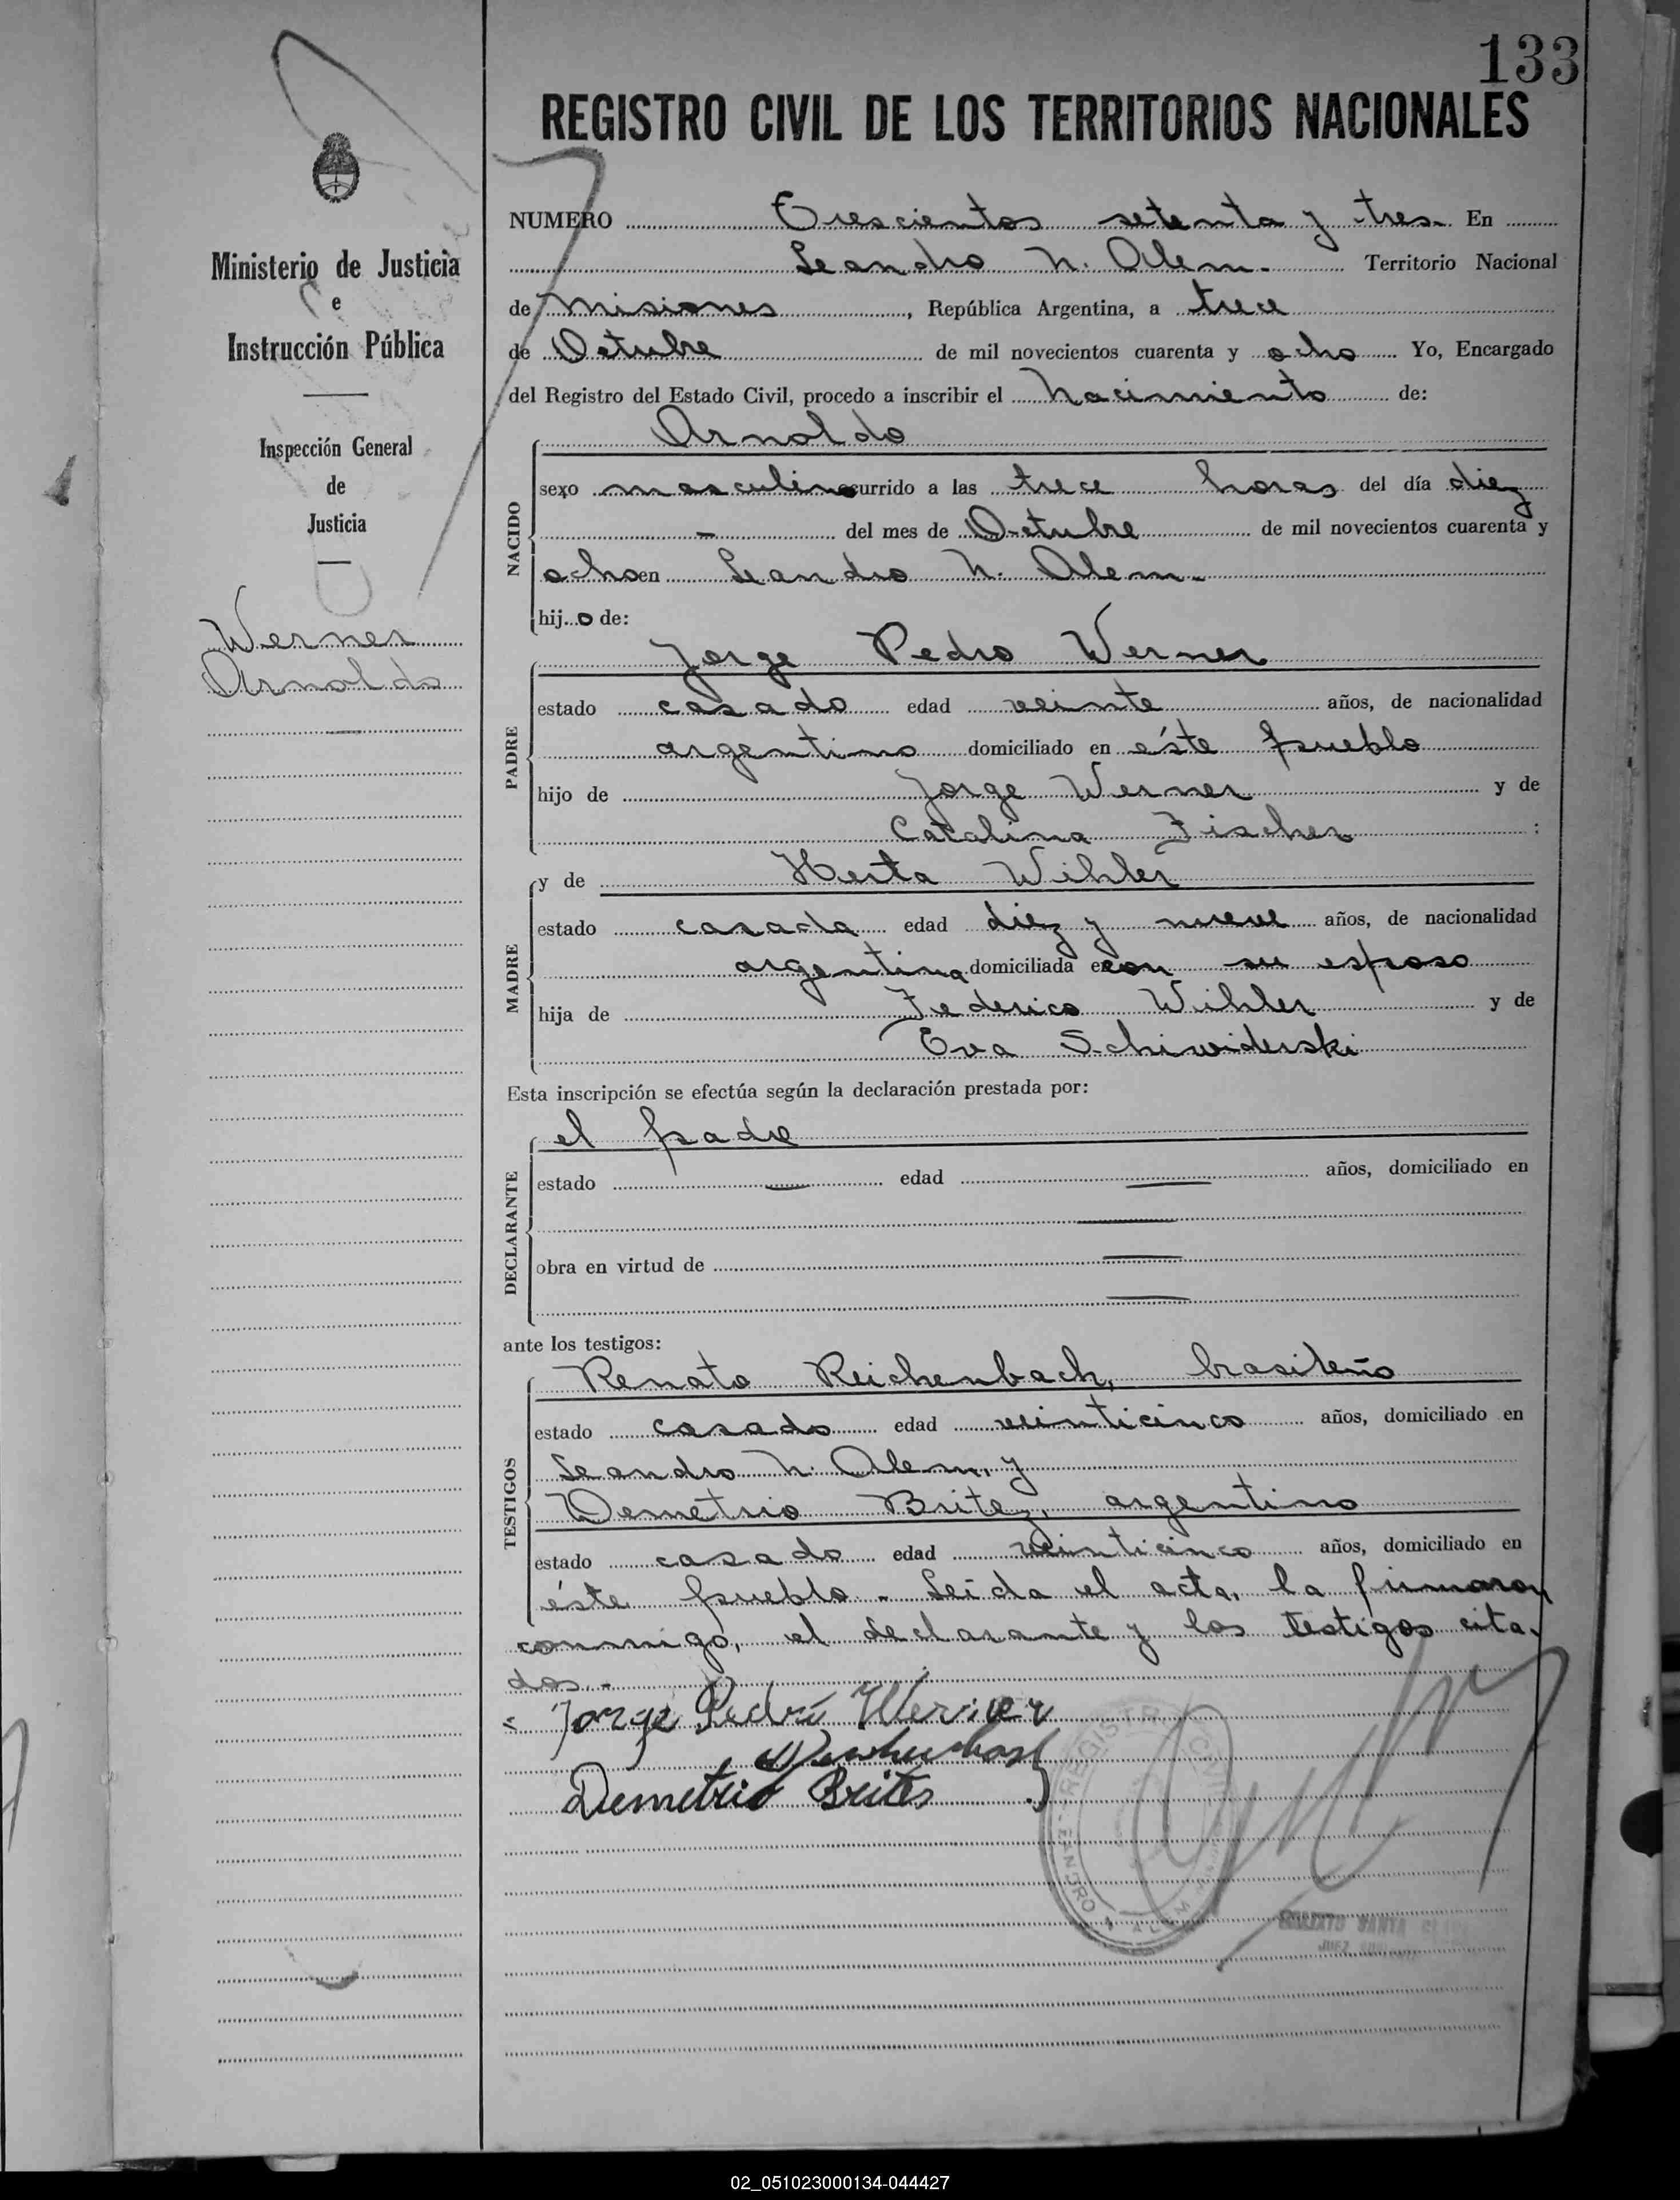 133
REGISTRO CIVIL DE LOS TERRITORIOS NACIONALES
Ministerio de Justicia
e
Instrucción Pública
Inspección General
de
Justicia
Werner
Arnoldo
NUMERO Trescientos setenta y tres. En
Leandro N. Alem. Territorio Nacional
de Misiones, República Argentina, a trece
de Octubre de mil novecientos cuarenta y ocho Yo, Encargado
del Registro del Estado Civil, procedo a inscribir el Nacimiento de:
NACIDO
Arnoldo
sexo masculino ocurrido a las trece horas del día diez
- del mes de Octubre de mil novecientos cuarenta y
ocho en Leandro N. Alem.
hijo de:
PADRE
Jorge Pedro Werner
estado casado edad veinte años, de nacionalidad
argentino domiciliado en éste pueblo
hijo de Jorge Werner y de
Catalina Fischer :
MADRE
y de Herta Wihler
estado casada edad diez y nueve años, de nacionalidad
argentina domiciliada en con su esposo
hija de Federico Wihler y de
Eva Schiwiderski
Esta inscripción se efectúa según la declaración prestada por:
DECLARANTE
el padre
estado — edad — años, domiciliado en
—
obra en virtud de —
—
ante los testigos:
TESTIGOS
Renato Reichenbach, brasileño
estado casado edad veinticinco años, domiciliado en
Leandro N. Alem, y
Demetrio Britez, argentino
estado casado edad veinticinco años, domiciliado en
éste pueblo. Leída el acta, la firmaron
conmigo, el declarante y los testigos cita-
dos.-
Jorge Pedro Werner
Demetrio Brites
REGISTRO CIVIL
LEANDRO N. ALEM
SANTA
JUEZ
02_051023000134-044427